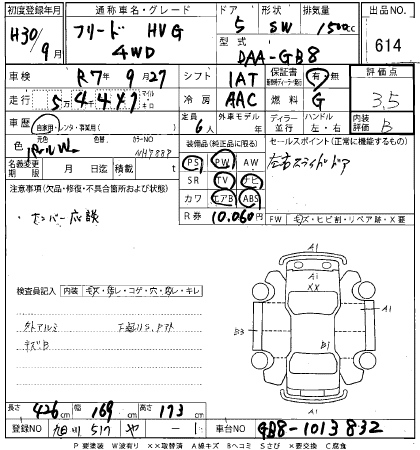 初度登録年月 通称車名・グレード ドア 形状 排気量 出品NO.
H30/9月 フリード HVG 4WD 5 SW 1500cc 614
型式 DAA-GB8
車検 R7年9月27 シフト IAT 保証書 有・無 評価点
走行 5万4447 マイル キロ 冷房 AAC 燃料 G 3.5
車歴 自家用・レンタ・事業用( ) 定員 6人 外車モデル 年 ディーラー 並行 ハンドル 左・右 内装評価 B
色 元色 色替 カラーNO NH788P
装備品(純正品に限る) セールスポイント(正常に機能するもの)
名義変更期限 月 日迄 積載 t
PS PW AW 左右スライドドア
SR TV ナビ
注意事項(欠品・修復・不具合箇所および状態)
カワ エアB ABS
R券 10,060円 FW キズ・ヒビ割・リペア跡・X要
ナンバー応談
検査員記入 内装 キズ・汚レ・コゲ・穴・スレ・キレ
外アルミキズB
A1
A1
XX
A1
B3
B1
A1
A1
長さ 426cm 幅 169cm 高さ 173cm
登録NO 旭川 517 や ー 1 車台NO GB8-1013832
P 要塗装 W波有り XX取替済 A線キズ Bヘコミ Sさび X要交換 C腐食